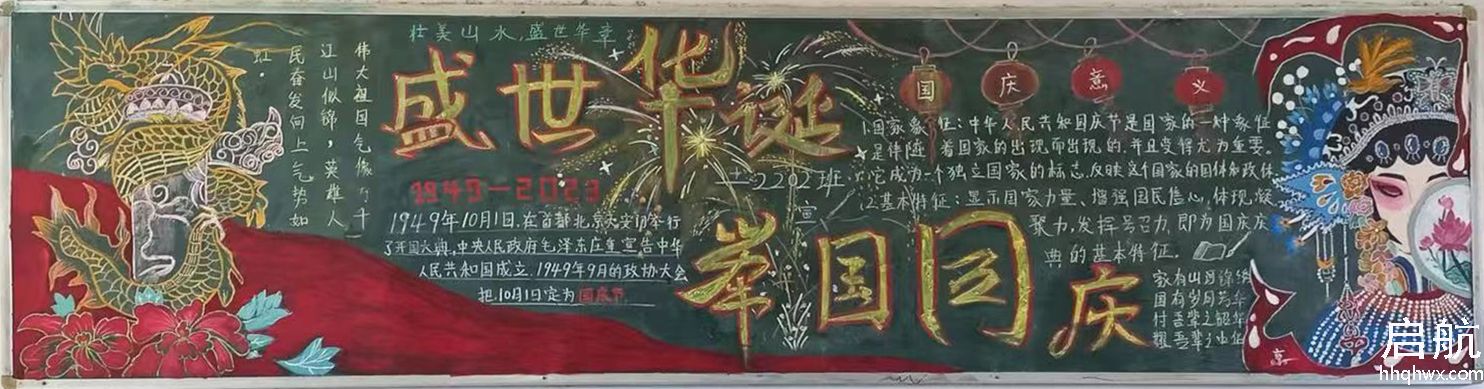 壮美山水,盛世华章
盛世华诞
举国同庆
伟大祖国气象万千
江山似锦，英雄人
民奋发向上气势如
虹.
1949-2023
1949年10月1日,在首都北京天安门举行
了开国大典,中央人民政府毛泽东庄重宣告中华
人民共和国成立.1949年9月的政协大会
把10月1日定为国庆节
2202班
宣
国庆意义
1.国家象征:中华人民共和国国庆节是国家的一种象征
是伴随着国家的出现而出现的,并且变得尤为重要。
它成为一个独立国家的标志,反映这个国家的国体和政体
2.基本特征:显示国家力量、增强国民信心,体现凝
聚力,发挥号召力,即为国庆庆
典的基本特征.
家有山河锦绣
国有岁月芳华
付吾辈之韶华
耀吾辈之中华
启航
hhqhwx.com